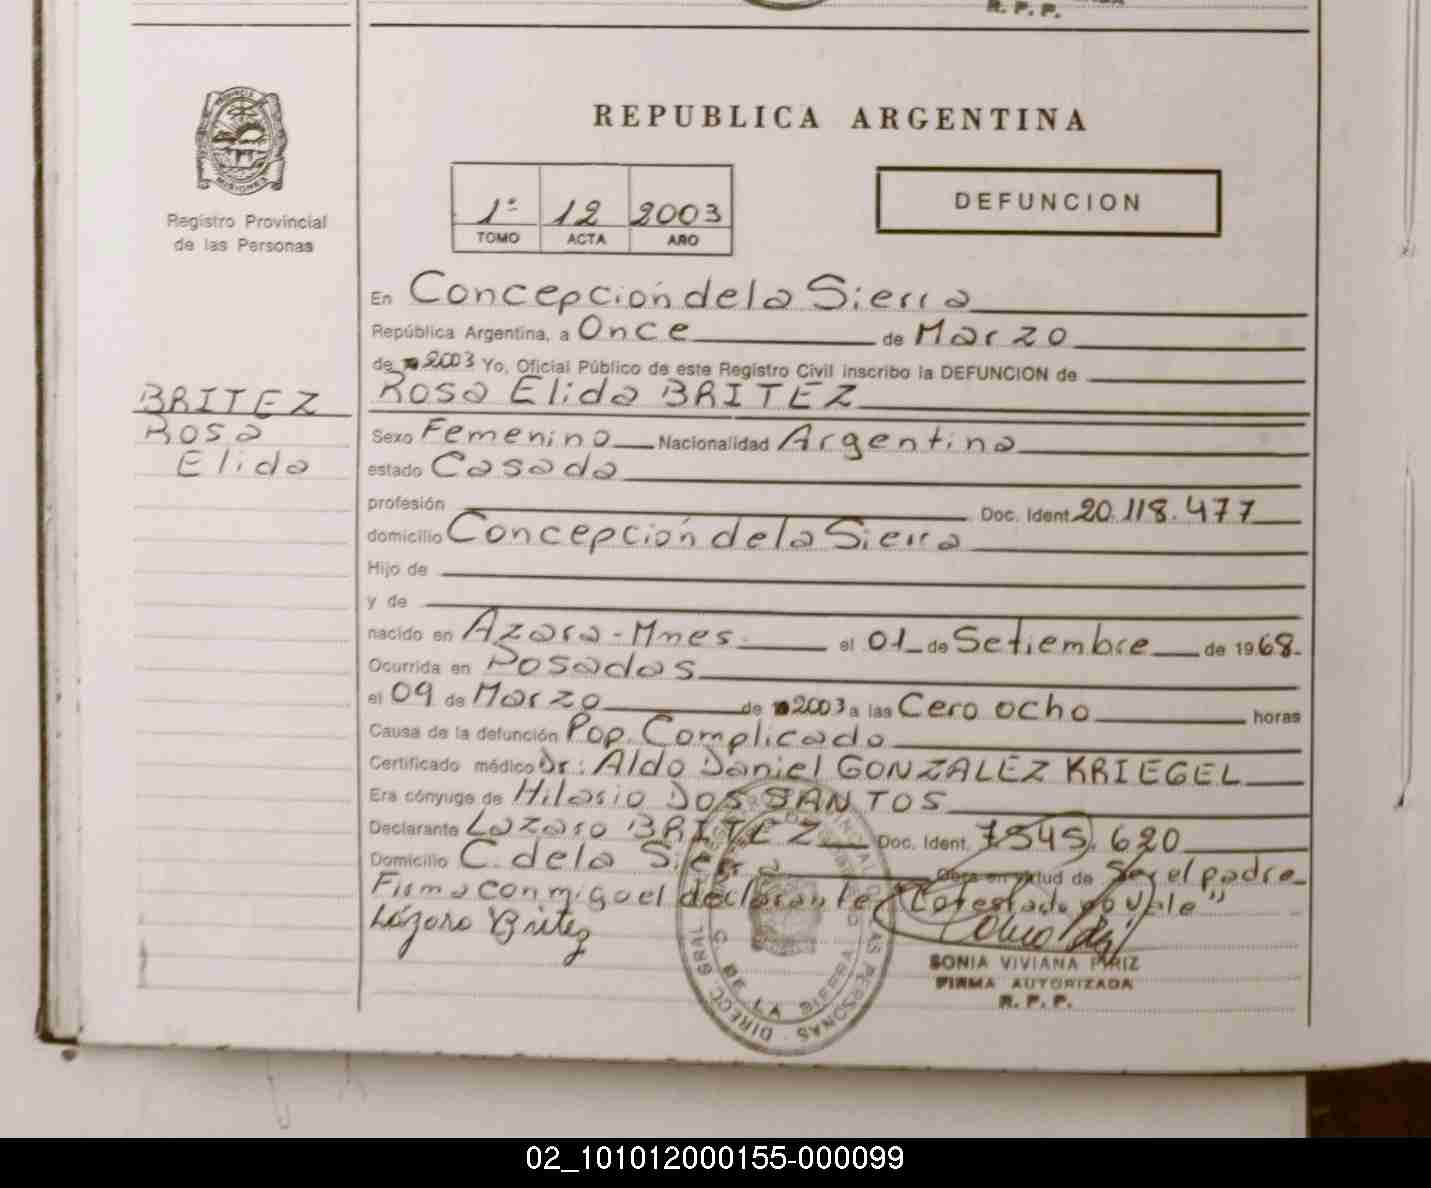 R. P. P.
REPUBLICA ARGENTINA
PROVINCIA DE
MISIONES
Registro Provincial
de las Personas
1º 12 2003
TOMO ACTA AÑO
DEFUNCION
En Concepción de la Sierra
República Argentina, a Once de Marzo
de 2003 Yo, Oficial Público de este Registro Civil inscribo la DEFUNCION de
BRITEZ
Rosa Elida BRITEZ
Rosa
Sexo Femenino Nacionalidad Argentina
Elida
estado Casada
profesión Doc. Ident. 20.118.477
domicilio Concepción de la Sierra
Hijo de
y de
nacido en Azara-Mnes. el 01 de Setiembre de 1968.
Ocurrida en Posadas
el 09 de Marzo de 2003 a las Cero ocho horas
Causa de la defunción Pop. Complicado
Certificado médico Dr: Aldo Daniel GONZALEZ KRIEGEL
Era cónyuge de Hilario DOS SANTOS
Declarante Lazaro BRITEZ Doc. Ident. 7545.620
Domicilio C. de la Sierra Obra en virtud de Ser el padre
Firma conmigo el declarante "Co testado no Vale"
Lázaro Britez
SONIA VIVIANA PIRIZ
FIRMA AUTORIZADA
R. P. P.
DIRECC. GRAL. PERSONAS
C. DE LA SIERRA
02_101012000155-000099